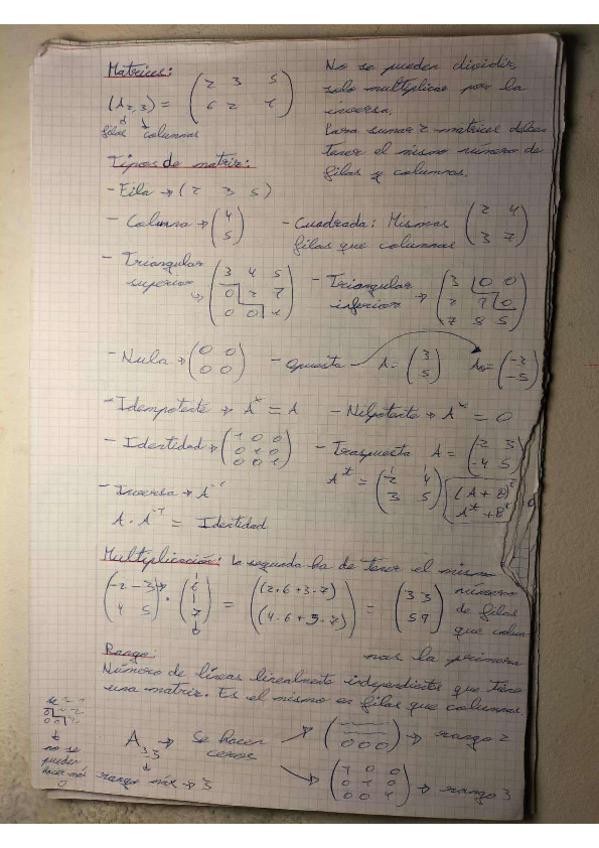 Matrices:
(A2,3) = (2 3 5
6 2 1)
↓ ↓
filas columnas
No se pueden dividir,
solo multiplicar por la
inversa.
Para sumar 2 matrices deben
tener el mismo número de
filas y columnas.
Tipos de matriz:
- Fila → (2 3 5)
- Columna → (4
5)
- Cuadrada: Mismas
filas que columnas
(2 4
3 7)
- Triangular
superior
(3 4 5
0 2 2
0 0 1)
- Triangular
inferior →
(3 0 0
2 7 0
7 8 5)
- Nula → (0 0
0 0)
- Opuesta A = (3
5) (-3
-5)
- Idempotente → = A
- Nilpotente → = 0
- Identidad → (1 0 0
0 1 0
0 0 1)
- Traspuesta A = (2 3
-4 5)
- Inversa → A⁻¹
A · A⁻¹ = Identidad
Multiplicación: La segunda ha de tener el mismo
número
de filas
que colum-
nas la primera
(-2 -3
4 5) · (6
7) = ((2·6+3·7)
(4·6+5·7)) = (33
59)
Rango:
Número de líneas linealmente independiente que tiene
una matriz. Es el mismo en filas que columnas.
A3,3 → Se hacen
ceros
→ (000) → rango 2
→ (1 0 0
0 1 0
0 0 1) → rango 3
rango máx → 3
no se
pueden
hacer más
0